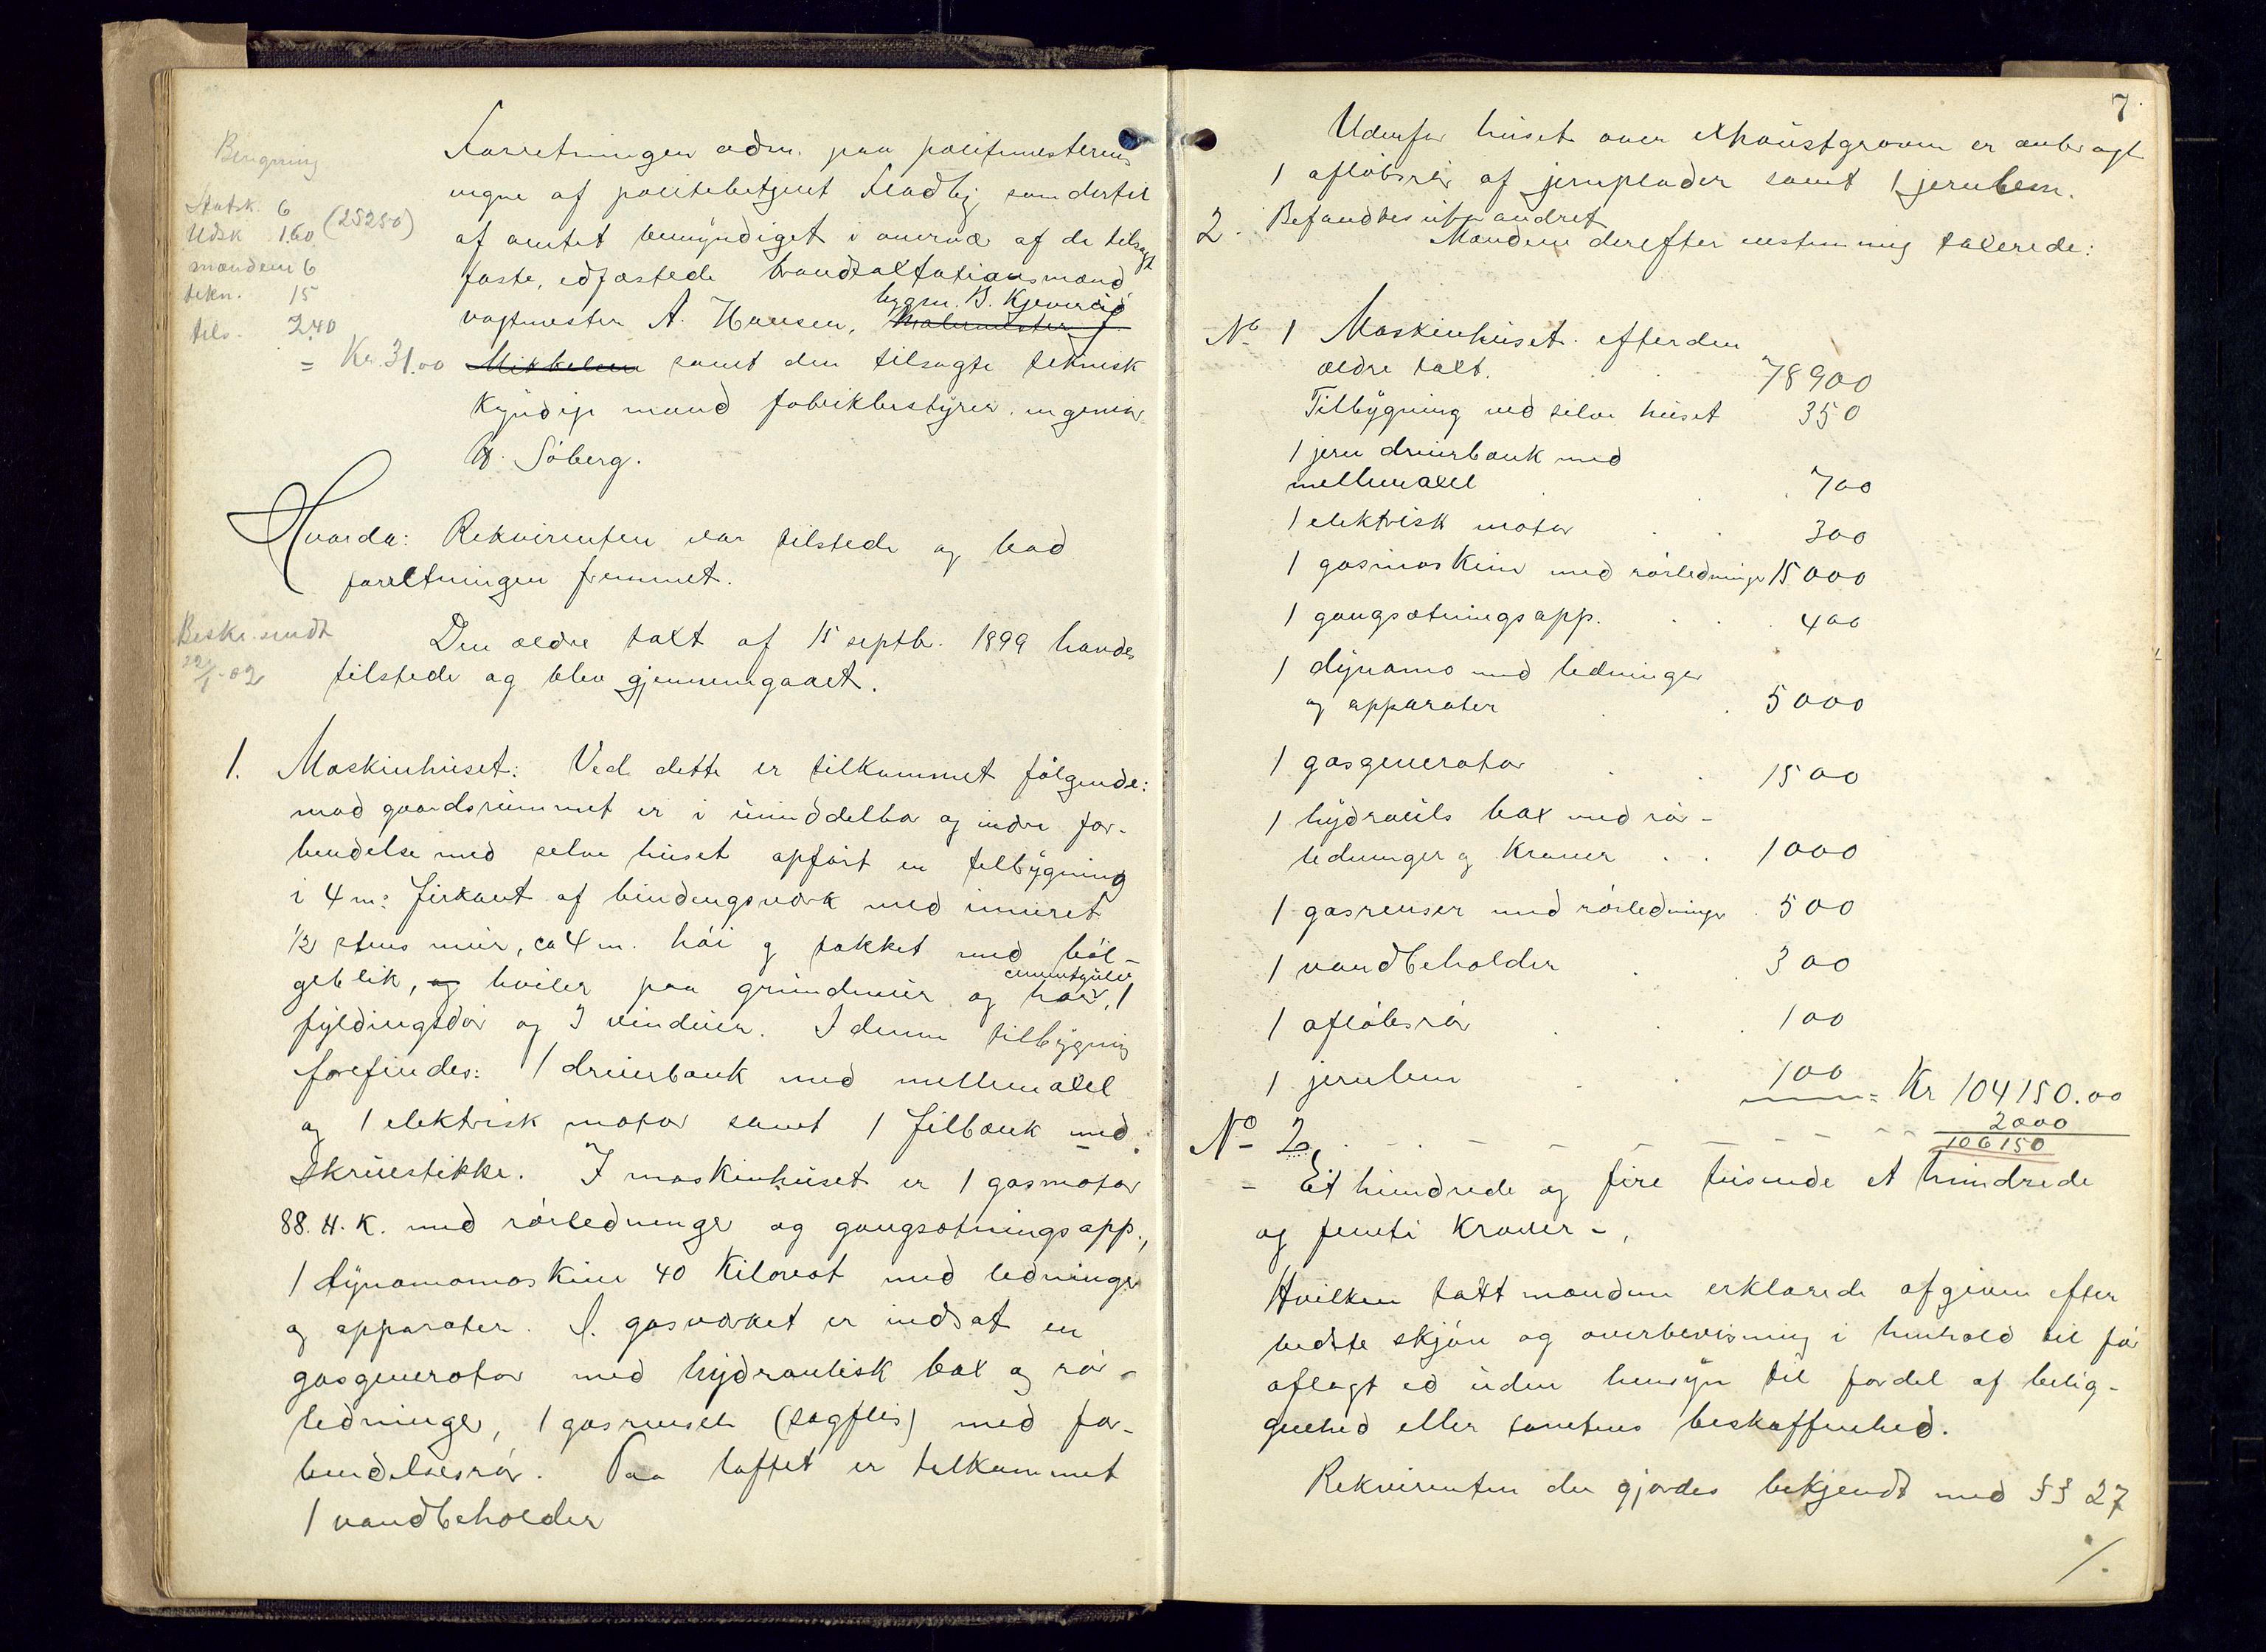 Beregning
Statsk. 6
Udsk 1.60 (25250)
mændene 6
tekn. 15
tils. 2.40
= Kr. 31.00
Forretningen adm. paa politimesterens
vegne af politibetjent Fladby som dertil
af amtet bemyndiget i overvær af de tilsagte
faste, edfæstede brandtaxtationsmænd
bygm. B. Kjemeröd
vagtmester A. Hansen, Malermester J.
Mikkelsen samt den tilsagte teknisk
kyndige mand fabrikbestyrer, ingeniør
H. Söberg.
Hvorda: Rekvirenten var tilstede og bad
forretningen fremmet.
Beskr. sendt
22/1-02
Den ældre taxt af 15 septbr. 1899 havdes
tilstede og blev gjennemgaaet.
1. Maskinhuset: Ved dette er tilkommet fölgende:
mod gaardsrummet er i umiddelbar og indre for-
bindelse med selve huset opfört en tilbygning
i 4 m: firkant af bindingsværk med inmuret
1/2 stens mur, ca 4 m. höi og takket med böl-
geblik, og hviler paa grundmur og har cementgulv, 1
fyldingsdör og 3 vinduer. I denne tilbygning
forefindes: 1 dreierbænk med mellemaxel
og 1 elektrisk motor samt 1 filbænk med
skruestikke. I maskinhuset er 1 gasmotor
88. H. K. med rörledninger og gangsætningsapp.,
1 dynamomaskine 40 Kilowat med ledninger
og apparater. I gasværket er indsat en
gasgenerator med hydraulisk box og rör-
ledninger, 1 gasrenser (sagflis) med for-
bindelsesrör. Paa loftet er tilkommet
1 vandbeholder
7.
Udenfor huset over exhaustgraven er anbragt
1 aflöbsrör af jernplader samt 1 jernbem.
2. Befandtes uforandret
Mændene derefter enstemmig taxerede:
No 1 Maskinhuset efter den
ældre taxt. 78900
Tilbygning ved selve huset 350
1 jern dreierbænk med
mellemaxel 700
1 elektrisk motor 300
1 gasmaskine med rörledninger 15000
1 gangsætningsapp. 400
1 dynamo med ledninger
og apparater 5000
1 gasgenerator 1500
1 hydrauls box med rör-
ledninger og kraner 1000
1 gasrenser med rörledninger 500
1 vandbeholder 300
1 aflöbsrör 100
1 jernbem 100 = Kr 104150.00
No 2, 2000
106150
- Et hundrede og fire tusende et hundrede
og femti kroner -,
Hvilken taxt mændene erklærede afgiven efter
bedste skjön og overbevisning i henhold til för
aflagt ed uden hensyn til fordel af belig-
genhed eller tomtens beskaffenhed.
Rekvirenten der gjordes bekjendt med §§ 27
/.